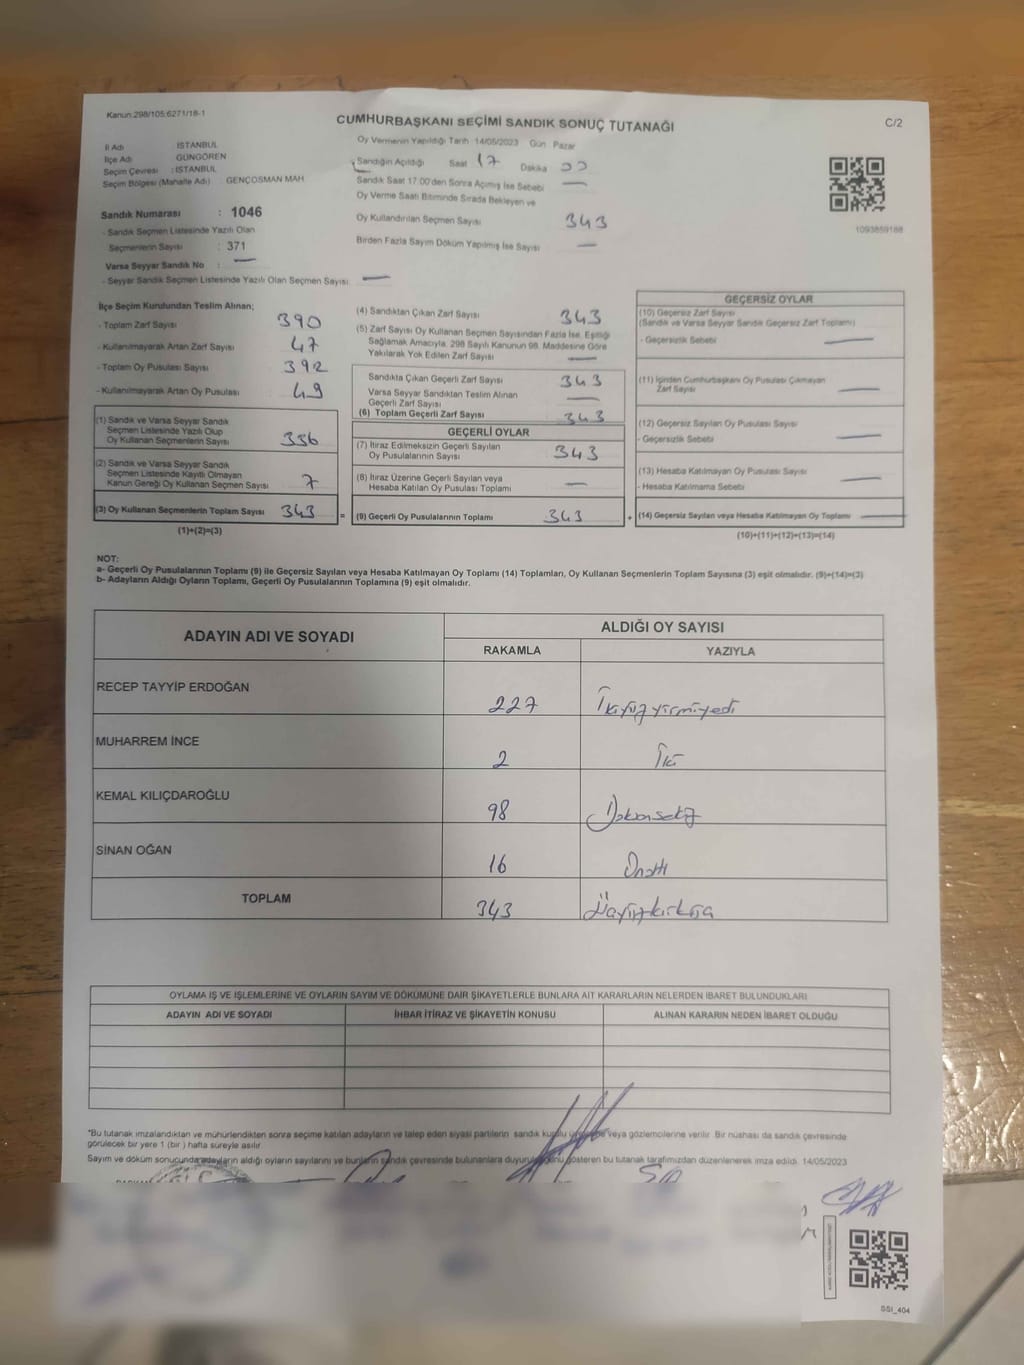 Kanun:298/105:6271/18-1
CUMHURBAŞKANI SEÇİMİ SANDIK SONUÇ TUTANAĞI
C/2
İl Adı İSTANBUL
İlçe Adı GÜNGÖREN
Seçim Çevresi : İSTANBUL
Seçim Bölgesi (Mahalle Adı) : GENÇOSMAN MAH.
Sandık Numarası : 1046
- Sandık Seçmen Listesinde Yazılı Olan
Seçmenlerin Sayısı : 371
Varsa Seyyar Sandık No : —
- Seyyar Sandık Seçmen Listesinde Yazılı Olan Seçmen Sayısı: —
Oy Vermenin Yapıldığı Tarih 14/05/2023 Gün Pazar
Sandığın Açıldığı Saat 17 Dakika
Sandık Saat 17.00'den Sonra Açılmış İse Sebebi —
Oy Verme Saati Bitiminde Sırada Bekleyen ve
Oy Kullandırılan Seçmen Sayısı 343
Birden Fazla Sayım Döküm Yapılmış İse Sayısı —
1093859188
İlçe Seçim Kurulundan Teslim Alınan;
- Toplam Zarf Sayısı 390
- Kullanılmayarak Artan Zarf Sayısı 47
- Toplam Oy Pusulası Sayısı 392
- Kullanılmayarak Artan Oy Pusulası 49
(1) Sandık ve Varsa Seyyar Sandık
Seçmen Listesinde Yazılı Olup
Oy Kullanan Seçmenlerin Sayısı 336
(2) Sandık ve Varsa Seyyar Sandık
Seçmen Listesinde Kayıtlı Olmayan
Kanun Gereği Oy Kullanan Seçmen Sayısı 7
(3) Oy Kullanan Seçmenlerin Toplam Sayısı 343 =
(1)+(2)=(3)
(4) Sandıktan Çıkan Zarf Sayısı 343
(5) Zarf Sayısı Oy Kullanan Seçmen Sayısından Fazla İse, Eşitliği
Sağlamak Amacıyla, 298 Sayılı Kanunun 98. Maddesine Göre
Yakılarak Yok Edilen Zarf Sayısı —
Sandıkta Çıkan Geçerli Zarf Sayısı 343
Varsa Seyyar Sandıktan Teslim Alınan
Geçerli Zarf Sayısı —
(6) Toplam Geçerli Zarf Sayısı 343
GEÇERLİ OYLAR
(7) İtiraz Edilmeksizin Geçerli Sayılan
Oy Pusulalarının Sayısı 343
(8) İtiraz Üzerine Geçerli Sayılan veya
Hesaba Katılan Oy Pusulası Toplamı —
(9) Geçerli Oy Pusulalarının Toplamı 343 +
GEÇERSİZ OYLAR
(10) Geçersiz Zarf Sayısı
(Sandık ve Varsa Seyyar Sandık Geçersiz Zarf Toplamı)
- Geçersizlik Sebebi —
(11) İçinden Cumhurbaşkanı Oy Pusulası Çıkmayan
Zarf Sayısı —
(12) Geçersiz Sayılan Oy Pusulası Sayısı
- Geçersizlik Sebebi —
(13) Hesaba Katılmayan Oy Pusulası Sayısı
- Hesaba Katılmama Sebebi —
(14) Geçersiz Sayılan veya Hesaba Katılmayan Oy Toplamı —
(10)+(11)+(12)+(13)=(14)
NOT:
a- Geçerli Oy Pusulasının Toplamı (9) ile Geçersiz Sayılan veya Hesaba Katılmayan Oy Toplamı (14) Toplamları, Oy Kullanan Seçmenlerin Toplam Sayısına (3) eşit olmalıdır. (9)+(14)=(3)
b- Adayların Aldığı Oyların Toplamı, Geçerli Oy Pusulalarının Toplamına (9) eşit olmalıdır.
ADAYIN ADI VE SOYADI ALDIĞI OY SAYISI
RAKAMLA YAZIYLA
RECEP TAYYİP ERDOĞAN 227 İkiyüzyirmiyedi
MUHARREM İNCE 2 İki
KEMAL KILIÇDAROĞLU 98 Doksansekiz
SİNAN OĞAN 16 Onaltı
TOPLAM 343 Üçyüzkırküç
OYLAMA İŞ VE İŞLEMLERİNE VE OYLARIN SAYIM VE DÖKÜMÜNE DAİR ŞİKAYETLERLE BUNLARA AİT KARARLARIN NELERDEN İBARET BULUNDUKLARI
ADAYIN ADI VE SOYADI İHBAR İTİRAZ VE ŞİKAYETİN KONUSU ALINAN KARARIN NEDEN İBARET OLDUĞU
*Bu tutanak imzalandıktan ve mühürlendikten sonra seçime katılan adayların ve talep eden siyasi partilerin sandık kurulu veya gözlemcilerine verilir. Bir nüshası da sandık çevresinde
görülecek bir yere 1 (bir) hafta süreyle asılır.
Sayım ve döküm sonucunda adayların aldığı oyların sayılarını ve bunların sandık çevresinde bulunanlara gösteren bu tutanak tarafımızdan düzenlenerek imza edildi. 14/05/2023
SSİ_404